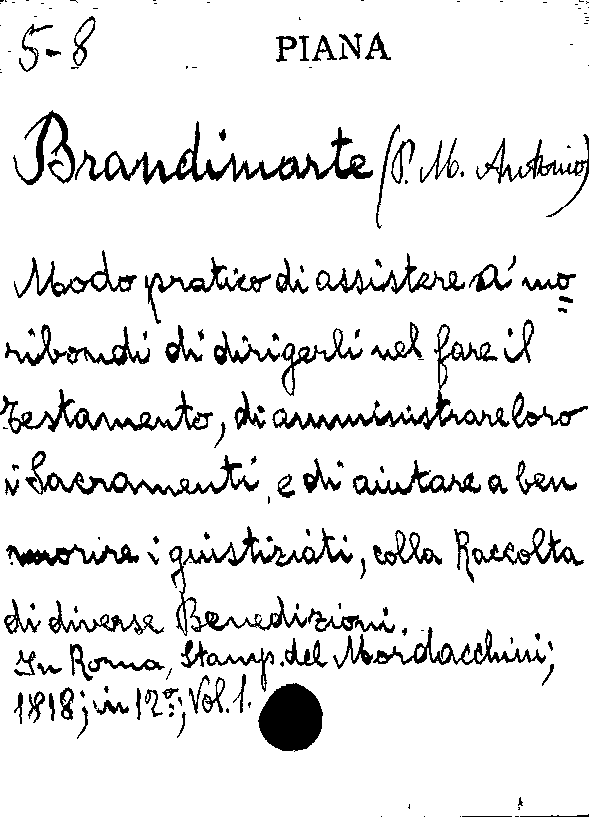 5-8
PIANA
Brandimarte (P. M. Antonio)
Modo pratico di assistere a' mo=
ribondi di dirigerli nel fare il
testamento, di amministrare loro
i Sacramenti, e di aiutare a ben
morire i giustiziati, colla Raccolta
di diverse Benedizioni.
In Roma, Stamp. del Mordacchini;
1818; in 12º; Vol. 1.